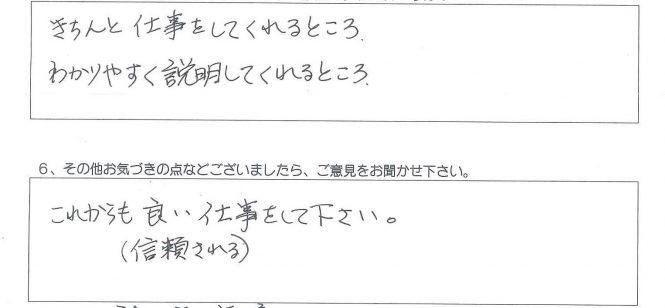 きちんと仕事をしてくれるところ.
わかりやすく説明してくれるところ.
6、その他お気づきの点などございましたら、ご意見をお聞かせ下さい。
これからも良い仕事をして下さい。
(信頼される)